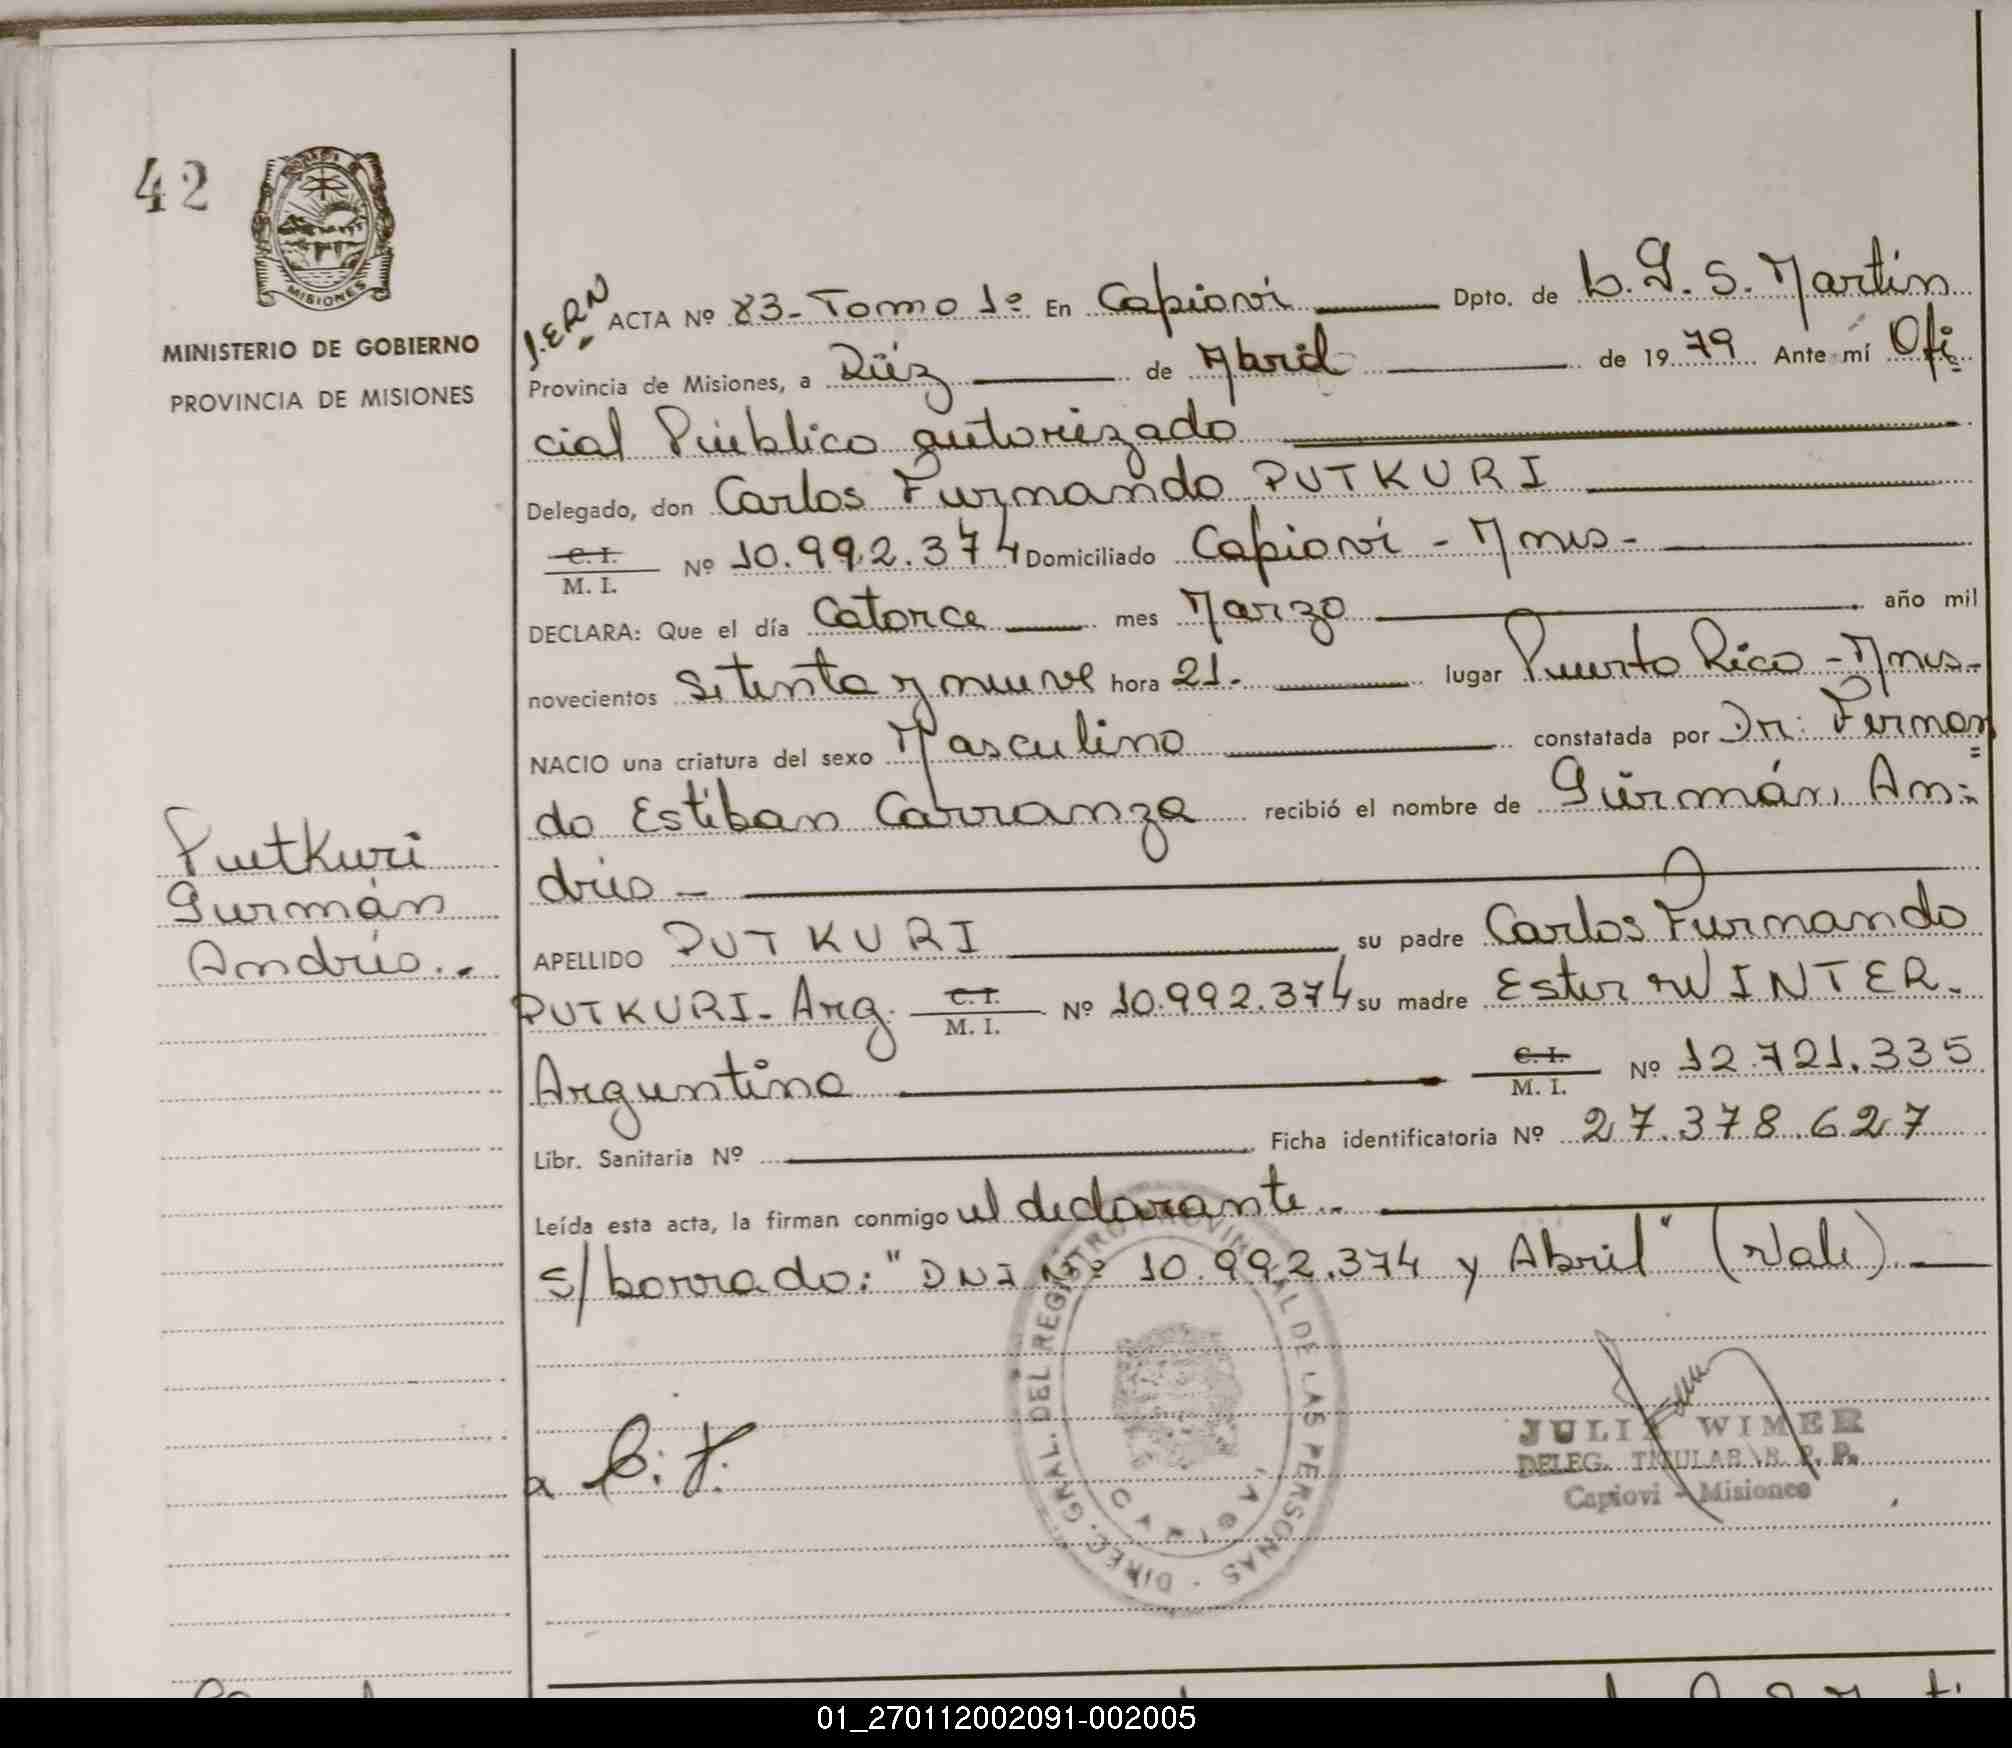 42
MISIONES
MINISTERIO DE GOBIERNO
PROVINCIA DE MISIONES
Putkuri
Germán
Andrés.-
ACTA Nº 83- Tomo 1º En Capioví Dpto. de L.G.S. Martín
Provincia de Misiones, a Diéz de Abril de 1979 Ante mí Ofi
cial Público autorizado
Delegado, don Carlos Fernando PUTKURI
C. I. / M. I. Nº 10.992.374 Domiciliado Capioví - Mnes-
DECLARA: Que el día Catorce mes Marzo año mil
novecientos Setenta y nueve hora 21.- lugar Puerto Rico - Mnes-
NACIO una criatura del sexo Masculino constatada por Dr: Fernan
do Esteban Carranza recibió el nombre de Germán, An=
drés -
APELLIDO PUTKURI su padre Carlos Fernando
PUTKURI- Arg. C. I. / M. I. Nº 10.992.374 su madre Ester WINTER.
Argentina C. I. / M. I. Nº 12.721.335
Libr. Sanitaria Nº Ficha identificatoria Nº 27.378.627
Leída esta acta, la firman conmigo el declarante.-
s/borrado: "DNI Nº 10.992.374 y Abril" (Vale).
DIREC. GRAL. DEL REGISTRO PROVINCIAL DE LAS PERSONAS
CAPIOVI
JULIA WIMER
DELEG. TITULAR R. P. P.
Capiovi - Misiones
01_270112002091-002005